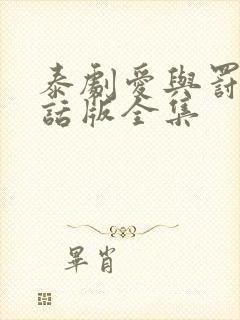 泰劇愛與罰
話版全集
畢肖